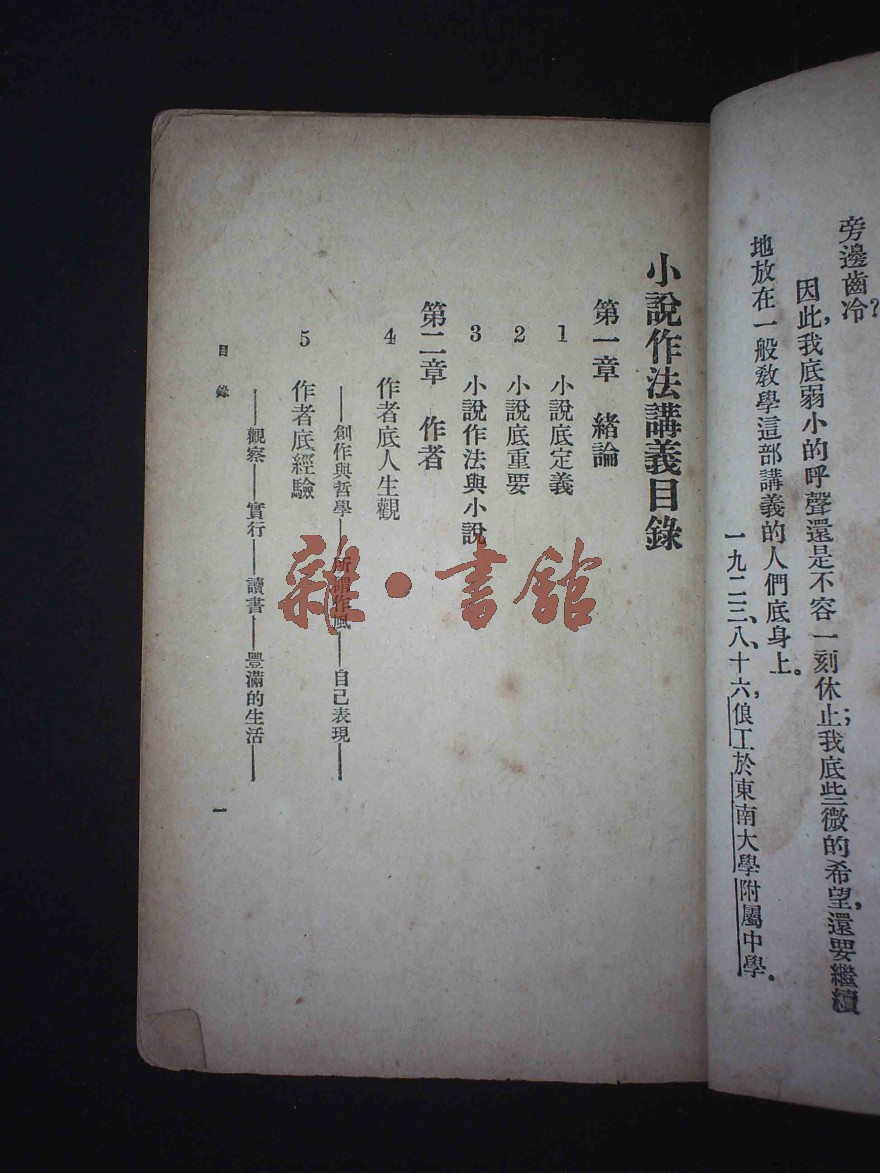 旁邊齒冷?
因此,我底弱小的呼聲還是不容一刻休止;我底些微的希望,還要繼續
地放在一般教學這部講義的人們底身上。
一九二三、八、十六,俍工於東南大學附屬中學。
小說作法講義目錄
第一章 緒論
1 小說底定義
2 小說底重要
3 小說作法與小說
第二章 作者
4 作者底人生觀
——創作與哲學——所謂作風——自己表現——
5 作者底經驗
——觀察——實行——讀書——豐滿的生活——
目錄
一
雜·書館